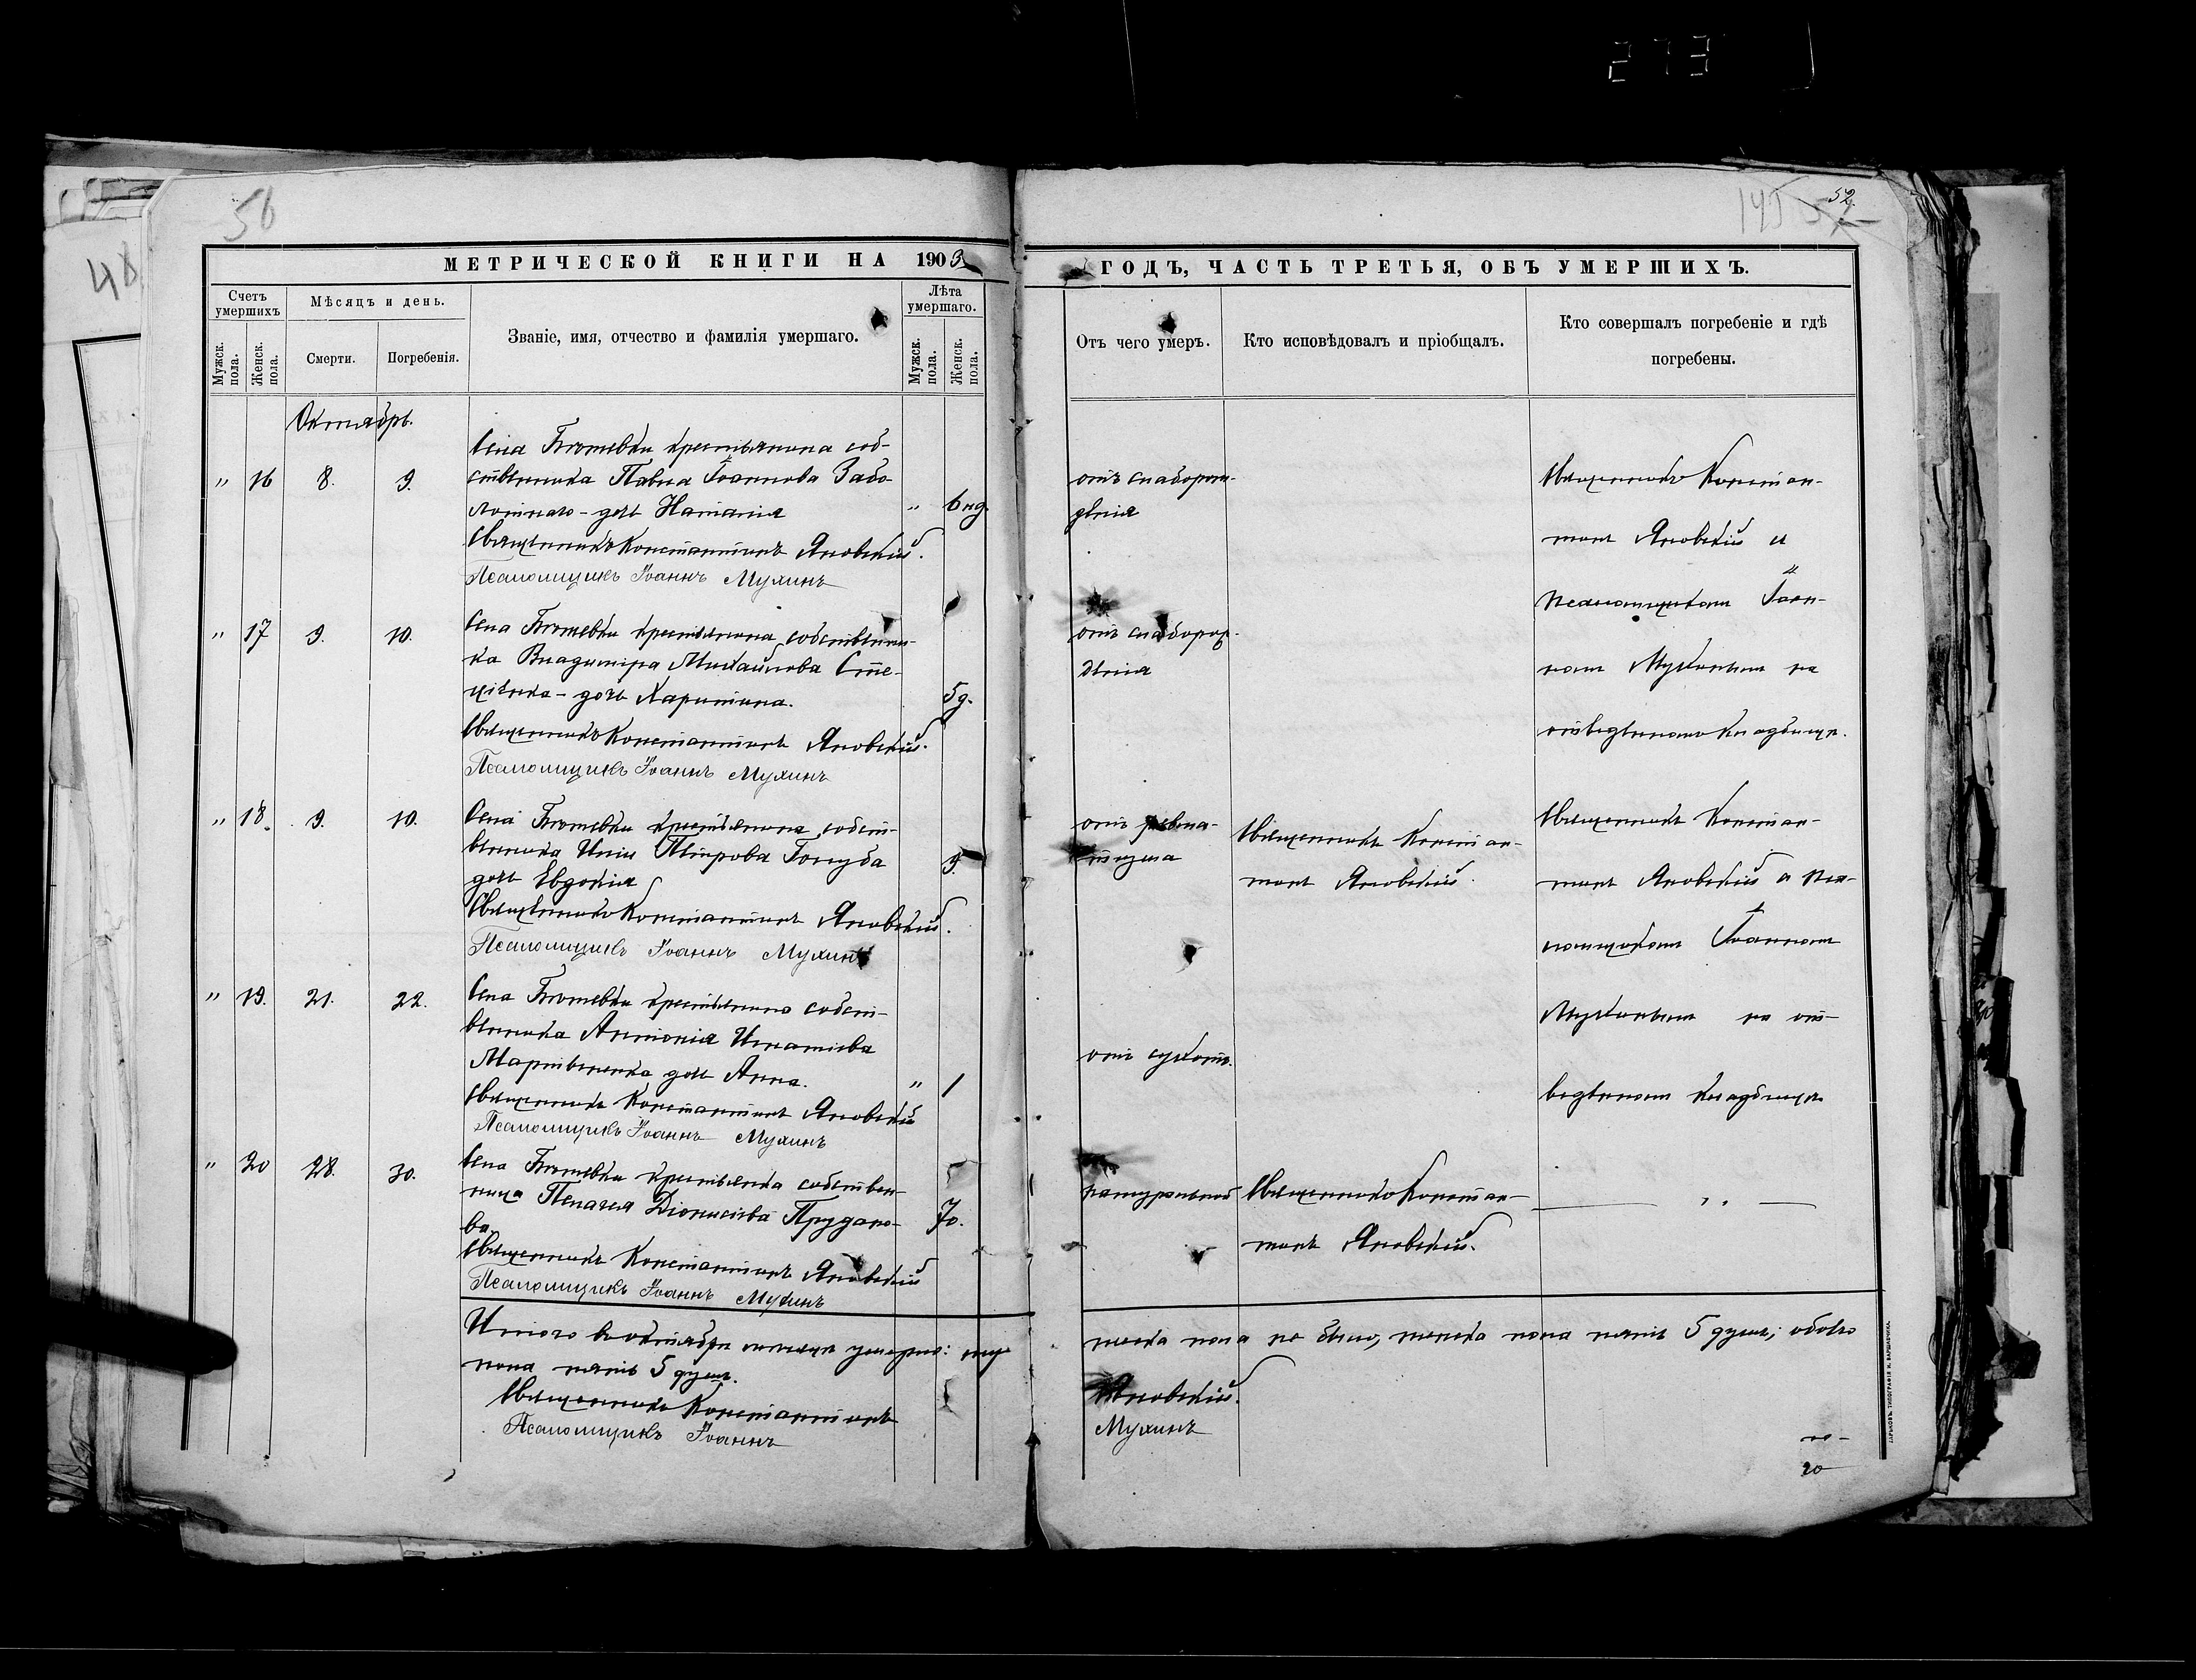 273
50
145 57
52.
48
МЕТРИЧЕСКОЙ КНИГИ НА 1903
ГОДЪ, ЧАСТЬ ТРЕТЬЯ, ОБЪ УМЕРШИХЪ.
Счетъ умершихъ
Мужск. пола.
Женск. пола.
Мѣсяцъ и день.
Смерти.
Погребенія.
Званіе, имя, отчество и фамилія умершаго.
Лѣта умершаго.
Мужск. пола.
Женск. пола.
Отъ чего умеръ.
Кто исповѣдовалъ и пріобщалъ.
Кто совершалъ погребеніе и гдѣ
погребены.
Октябрь.
„ 16 8. 9.
Села крестьянина соб-
ственника Павла Іоаннова Забо-
лотнаго - дочь Наталія
„ 6 нд.
Священникъ Константинъ Яновскій.
Псаломщикъ Іоаннъ Мухинъ
отъ слаборож-
денія
Священникъ Констан-
тинъ Яновскій и
псаломщикомъ Іоан-
номъ Мухинымъ на
отведенномъ кладбищѣ.
„ 17 9. 10.
Села крестьянина собственни-
ка Владиміра Михайлова Сте-
ценка - дочь Харитина.
5 д.
Священникъ Константинъ Яновскій.
Псаломщикъ Іоаннъ Мухинъ
отъ слаборож-
денія
„ 18. 9. 10.
Села крестьянина собст-
венника Иліи Петрова Голуба
дочь Евдокія
9.
Священникъ Константинъ Яновскій.
Псаломщикъ Іоаннъ Мухинъ
отъ ревма-
тизма
Священникъ Констан-
тинъ Яновскій.
Священникъ Констан-
тинъ Яновскій и пса-
ломщикомъ Іоанномъ
Мухинымъ на от-
веденномъ кладбищѣ
„ 19. 21. 22.
Села крестьянина собст-
венника Антонія Игнатіева
Мартыненка дочь Анна.
„ 1
Священникъ Константинъ Яновскій
Псаломщикъ Іоаннъ Мухинъ
отъ сухоты.
„ 20 28. 30.
Села крестьянка собствен-
ница Пелагея Діонисіева Прудано-
ва
70.
Священникъ Константинъ Яновскій
Псаломщикъ Іоаннъ Мухинъ
натуральной
Священникъ Констан-
тинъ Яновскій.
— „ —
Итого въ октябрѣ мѣсяцѣ умерло: му-
жеска пола не было, женска пола пять 5 душъ; обоего
пола пять 5 душъ.
Священникъ Константинъ Яновскій.
Псаломщикъ Іоаннъ Мухинъ
20
ХАРЬКОВЪ. ТИПОГРАФІЯ И. ВАРШАВЧИКА.